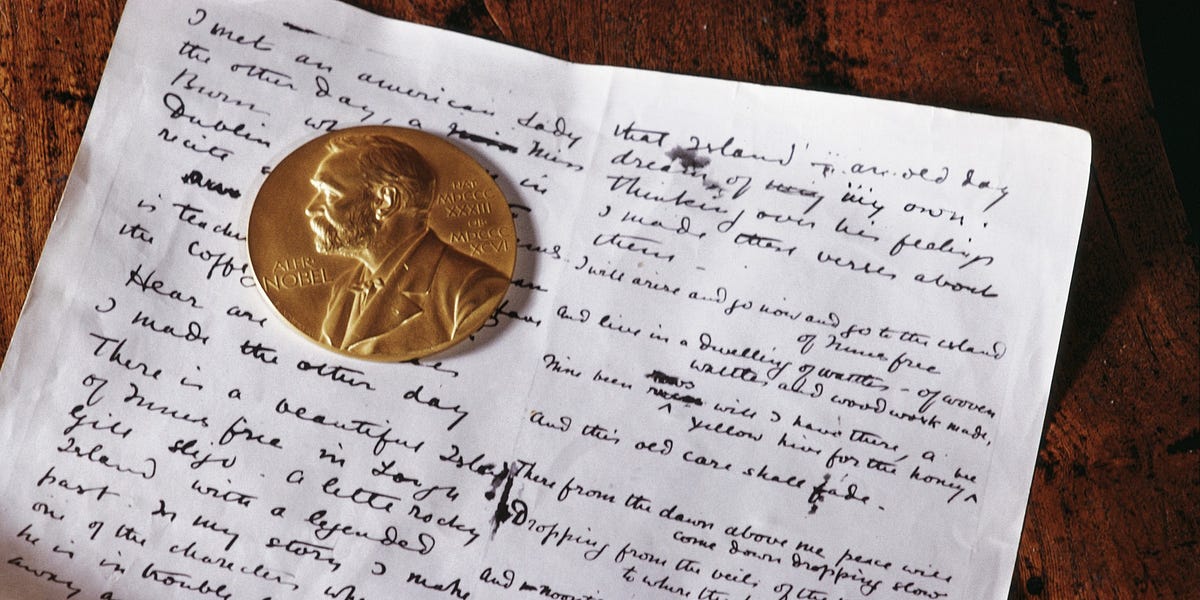 I met an american lady
the other day, a Miss
Burn wh
Dublin in
recite
is teach
the coffe
Hear are
I made the other day
There is a beautiful Isla
of Innis free in Lough
Gill sligo. a little rocky
Island with a legended
past. In my story I make
one of the characters whe
he is in trouble
away
ALFR
NOBEL
NAT
MDCCC
XXXIII
OB
MDCCC
XCVI
that Island an old day
dream of my own.
Thinking over his feelings
I made these verses about
them –
I will arise and go now and go to the island
of Innis free
And live in a dwelling of wattles – of woven
wattles and wood work made,
Nine bean rows will I have there, a
yellow hive for the honey bee
And this old care shall fade.
There from the dawn above me peace will
come down dropping slow
Dropping from the veils of the
to where the
and noon